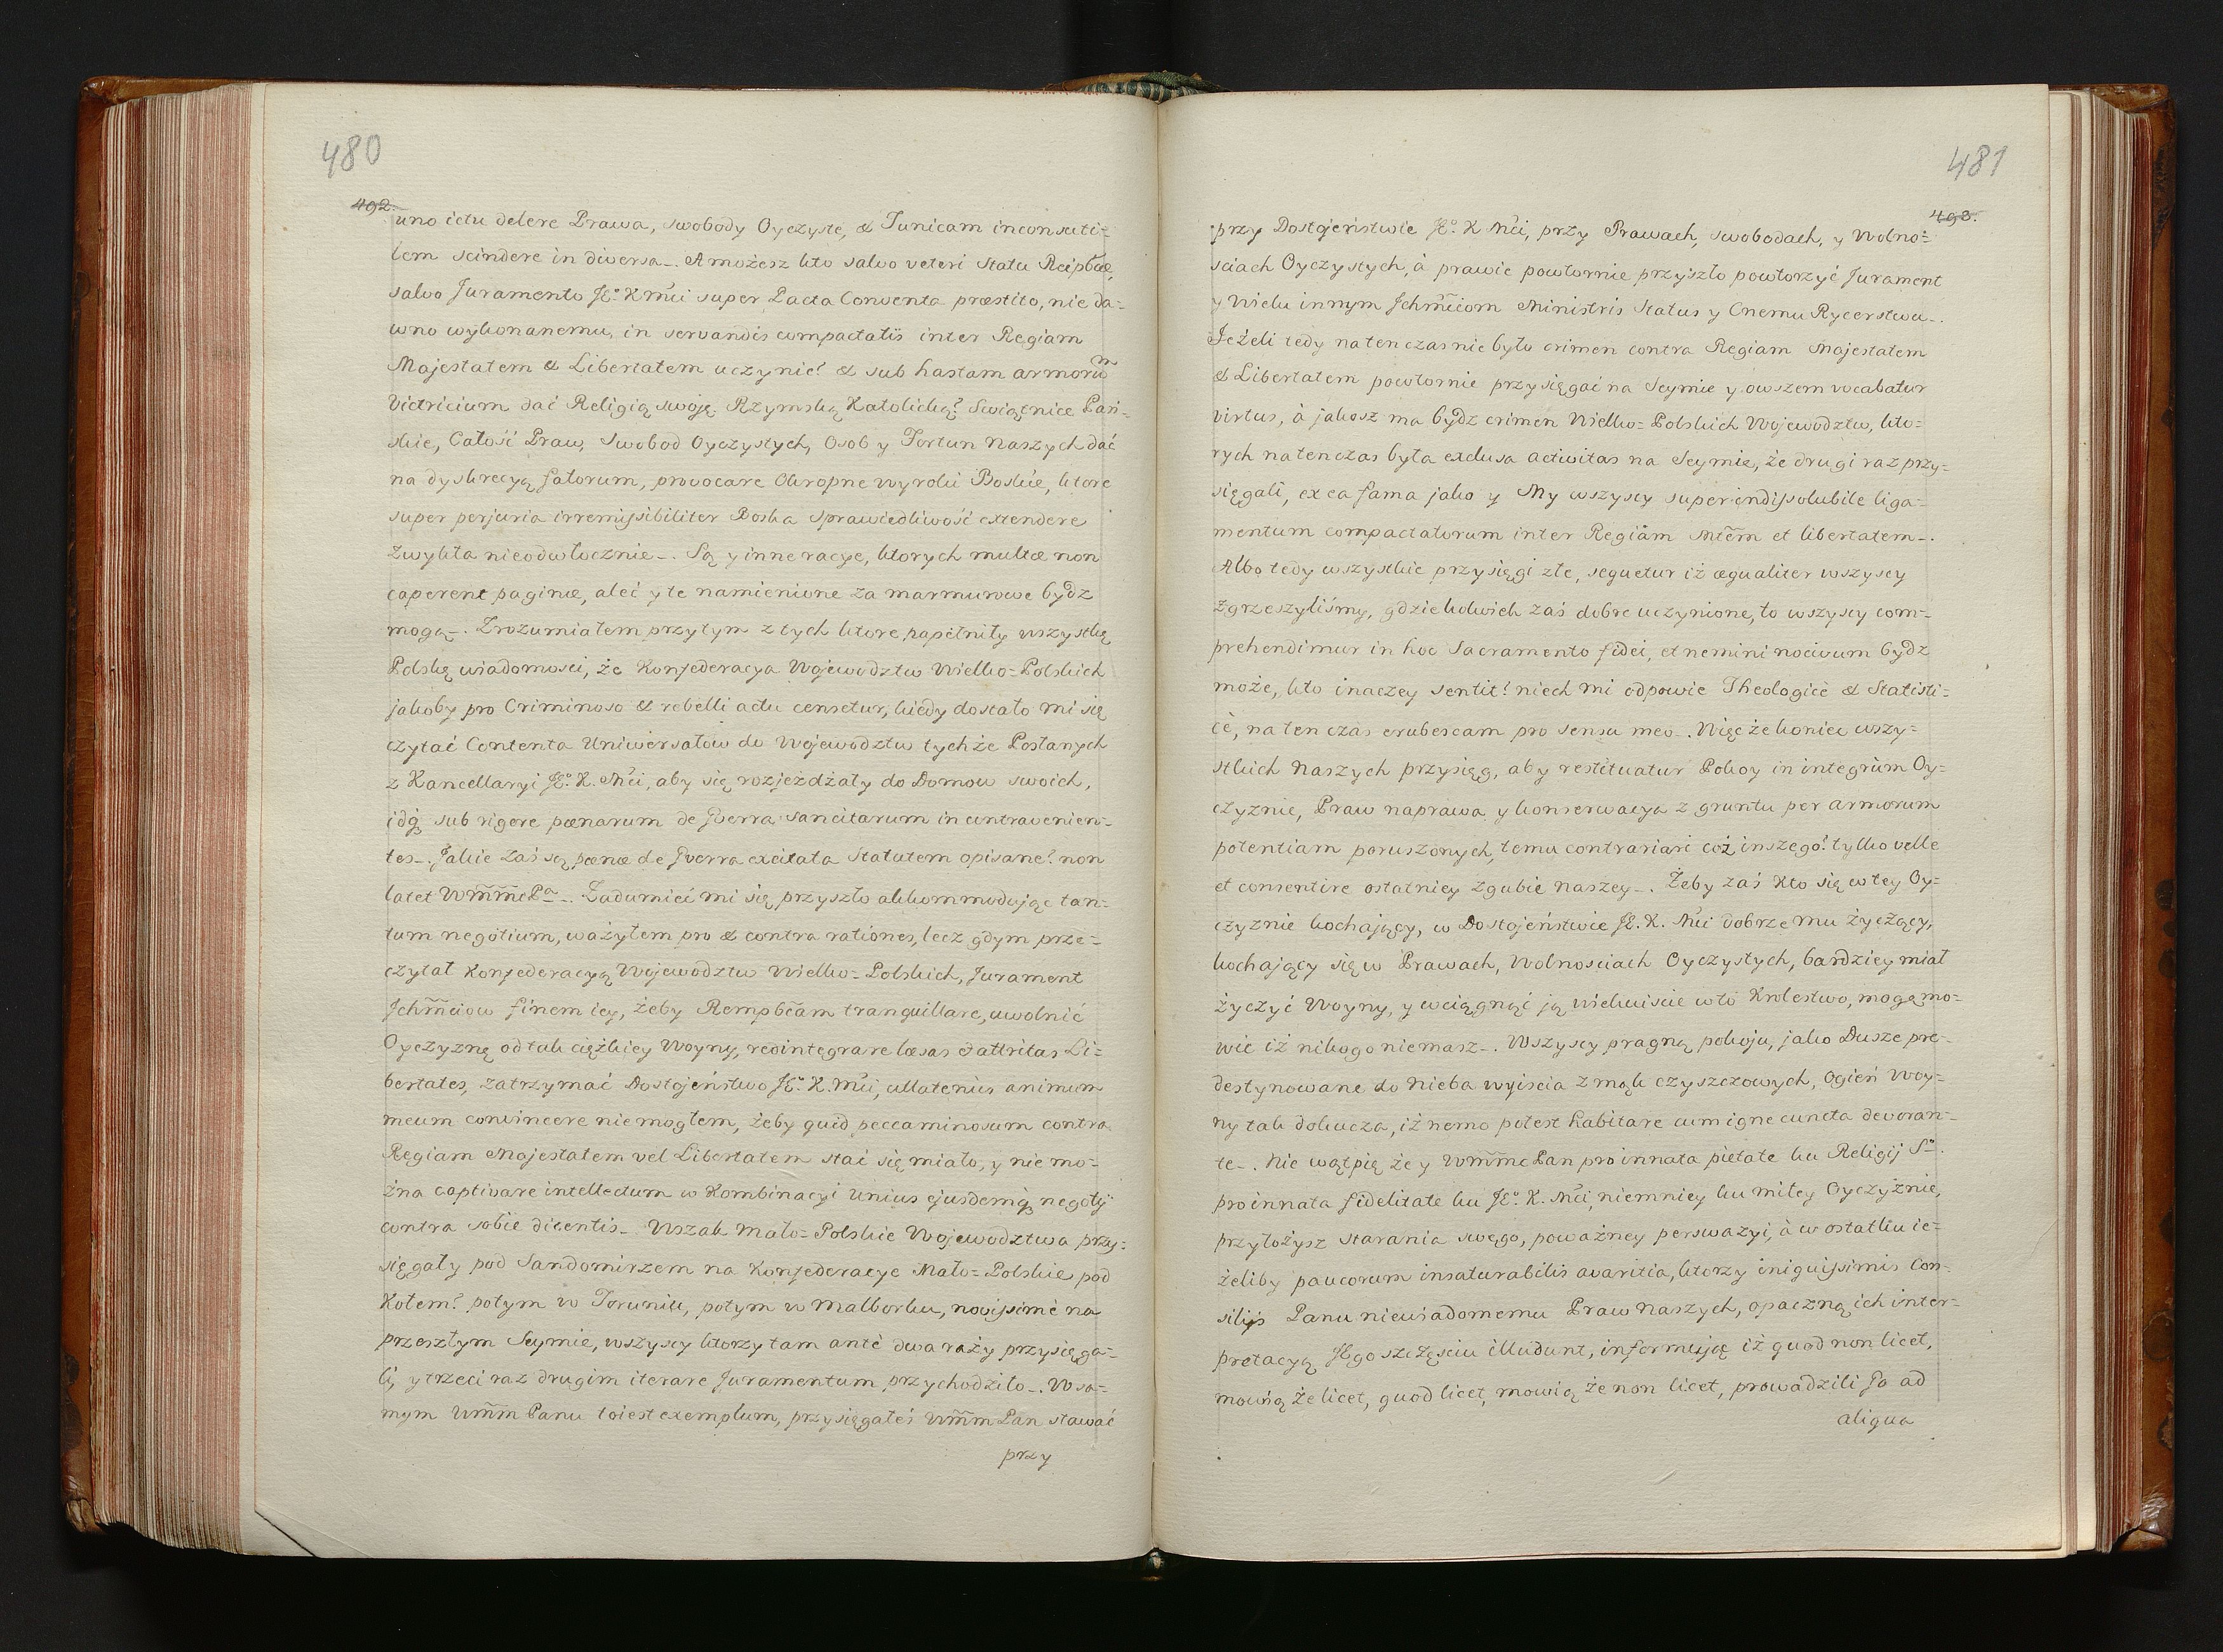 480
492.
uno ictu delere Prawa, swobody Oyczyste, & Tunicam inconsuti=
lem scindere in diversa_. A możesz kto salvo veteri statu Reipblcæ,
salvo Juramento JE͠o K Mći super Pacta Conventa præstito, nie da=
wno wykonanemu, in servandis compactatis inter Regiam
Majestatem & Libertatem uczynić? & sub hastam armorum
Victricium dać Religią swoję Rzymską Katolicką? Swiątnice Pań-
skie, Całość Praw, Swobod Oyczystych, Osob y Fortun Naszych dać
na dyskrecyą fatorum, provocare Okropne wyroki Boskie, ktore
super perjuria irremissibiliter Boska Sprawiedliwość extendere
zwykła nieodwłocznie_. Są y inne racye, ktorych multæ non
caperent paginæ, aleć y te namienione za marmurowe bydz
mogą_. Zrozumiałem przytym z tych ktore napełniły wszystką
Polskę wiadomosci, że Konfederacya Wojewodztw Wielko=Polskich
jakoby pro Criminoso & rebelli actu censetur, kiedy dostało mi się
czytać Contenta Uniwersałow do Wojewodztw tychże Posłanych
z Kancellaryi JE͠o K. Mći, aby się rozjeżdżały do Domow swoich,
idq́ sub rigore pœnarum de Gverra sancitarum in contravenien-
tes_. Jakie zaś są pœnæ de Gverra excitata Statutem opisane? non
latet WMMcPa_. Zadumieć mi się przyszło akkommodując tan=
tum negotium, ważyłem pro & contra rationes, lecz gdym prze=
czytał Konfederacyą Wojewodztw Wielko=Polskich, Jurament
Jchm̃ciow finem icy, żeby Rempblcam tranquillare, uwolnić
Oyczyznę od tak ciężkiey Woyny, redintegrare læsas & attritas Li=
bertates, zatrzymać Dostojeństwo JE͠o K. Mći, ullatenus animum
meum convincere niemogłem, żeby quid peccaminosum contra
Regiam Majestatem vel Libertatem stać się miało, y nie mo=
żna captivare intellectum w Kombinacyi unius ejusdemq́ negotij
contra sobie dicentis_ Wszak Mało=Polskie Wojewodztwa przy=
sięgały pod Sandomirzem na Konfederacye Mało=Polskie pod
Kołem? potym w Toruniu, potym w Malborku, novissimè na
przeszłym Seymie, wszyscy ktorzy tam antè dwa razy przysięga=
li, y trzeci raz drugim iterare Juramentum przychodziło_. W sa=
mym Wm̃m Panu to iest exemplum, przysięgałeś Wm̃m Pan stawać
przy
481
493.
przy Dostojeństwie JE͠o K Mći, przy Prawach, swobodach, y Wolno=
sciach Oyczystych, à prawie powtornie przyszło powtorzyć Jurament
y Wielu innym Jchm̃ciom Ministris Status y Cnemu Rycerstwu_.
Jeżeli tedy natenczas nie było crimen contra Regiam Majestatem
& Libertatem powtornie przysięgać na Seymie y owszem vocabatur
virtus, à jakosz ma bydz crimen Wielko=Polskich Wojewodztw, kto=
rych natenczas była exclusa activitas na Seymie, że drugi raz przy=
sięgali, ex ea fama jako y My wszyscy super indissolubile liga=
mentum compactatorum inter Regiam Mtẽm et libertatem_.
Albo tedy wszystkie przysięgi złe, sequetur iż æqualiter wszyscy
zgrzeszyliśmy, gdziekolwiek zaś dobre uczynione, to wszyscy com-
prehendimur in hoc Sacramento fidei, et nemini nocivum bydz
może, kto inaczey sentit? niech mi odpowie Theologicè & Statisti=
cè, na ten czas erubescam pro sensu meo_. Więc że koniec wszy=
stkich Naszych przysiąg, aby restituatur Pokoy in integrum Oy=
czyznie, Praw naprawa y konserwacya z gruntu per armorum
potentiam poruszonych, temu contrariari coż inszego? tylko velle
et consentire ostatniey zgubie Naszey_. Żeby zaś kto się w tey Oy=
czyznie kochający, w Dostojeństwie JE. K. Mći dobrze mu życzący,
kochający się w Prawach, Wolnosciach Oyczystych, bardziey miał
życzyć Woyny, y wciągnąć ją wiekuiscie w to Krolestwo, mogę mo=
wić iż nikogo niemasz_. Wszyscy pragną pokoju, jako Dusze pre-
destynowane do Nieba wyiscia z mąk czyszczowych, Ogień Woy=
ny tak dokucza, iż nemo potest habitare cum igne cuncta devoran-
te_. Nie wątpię że y WMMc Pan pro innata pietate ku Religij S͠o.
pro innata fidelitate ku JE͠o K. Mći, niemniey ku miłey Oyczyznie,
przyłożysz starania swego, poważney perswazyi, à w ostatku ie=
żeliby paucorum insaturabilis avaritia, ktorzy iniquissimis Con-
silijs Panu niewiadomemu Praw Naszych, opaczną ich inter=
pretacyą JEgo szczęsciu illudunt, informując iż quod non licet,
mowią że licet, quod licet, mowią że non licet, prowadzili Go ad
aliqua